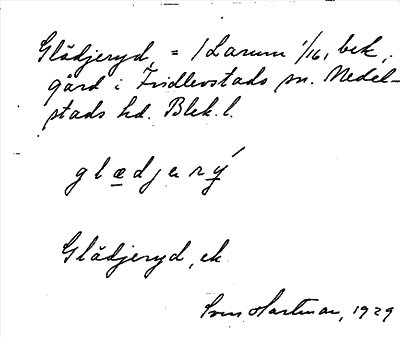 Glädjeryd, = / Larum 1/16, bek.
gård i Fridlevstads sn. Medel-
stads hd. Blek. l.
g l æ d j e r ý
Glädjeryd, ek
Sven Hartman, 1929